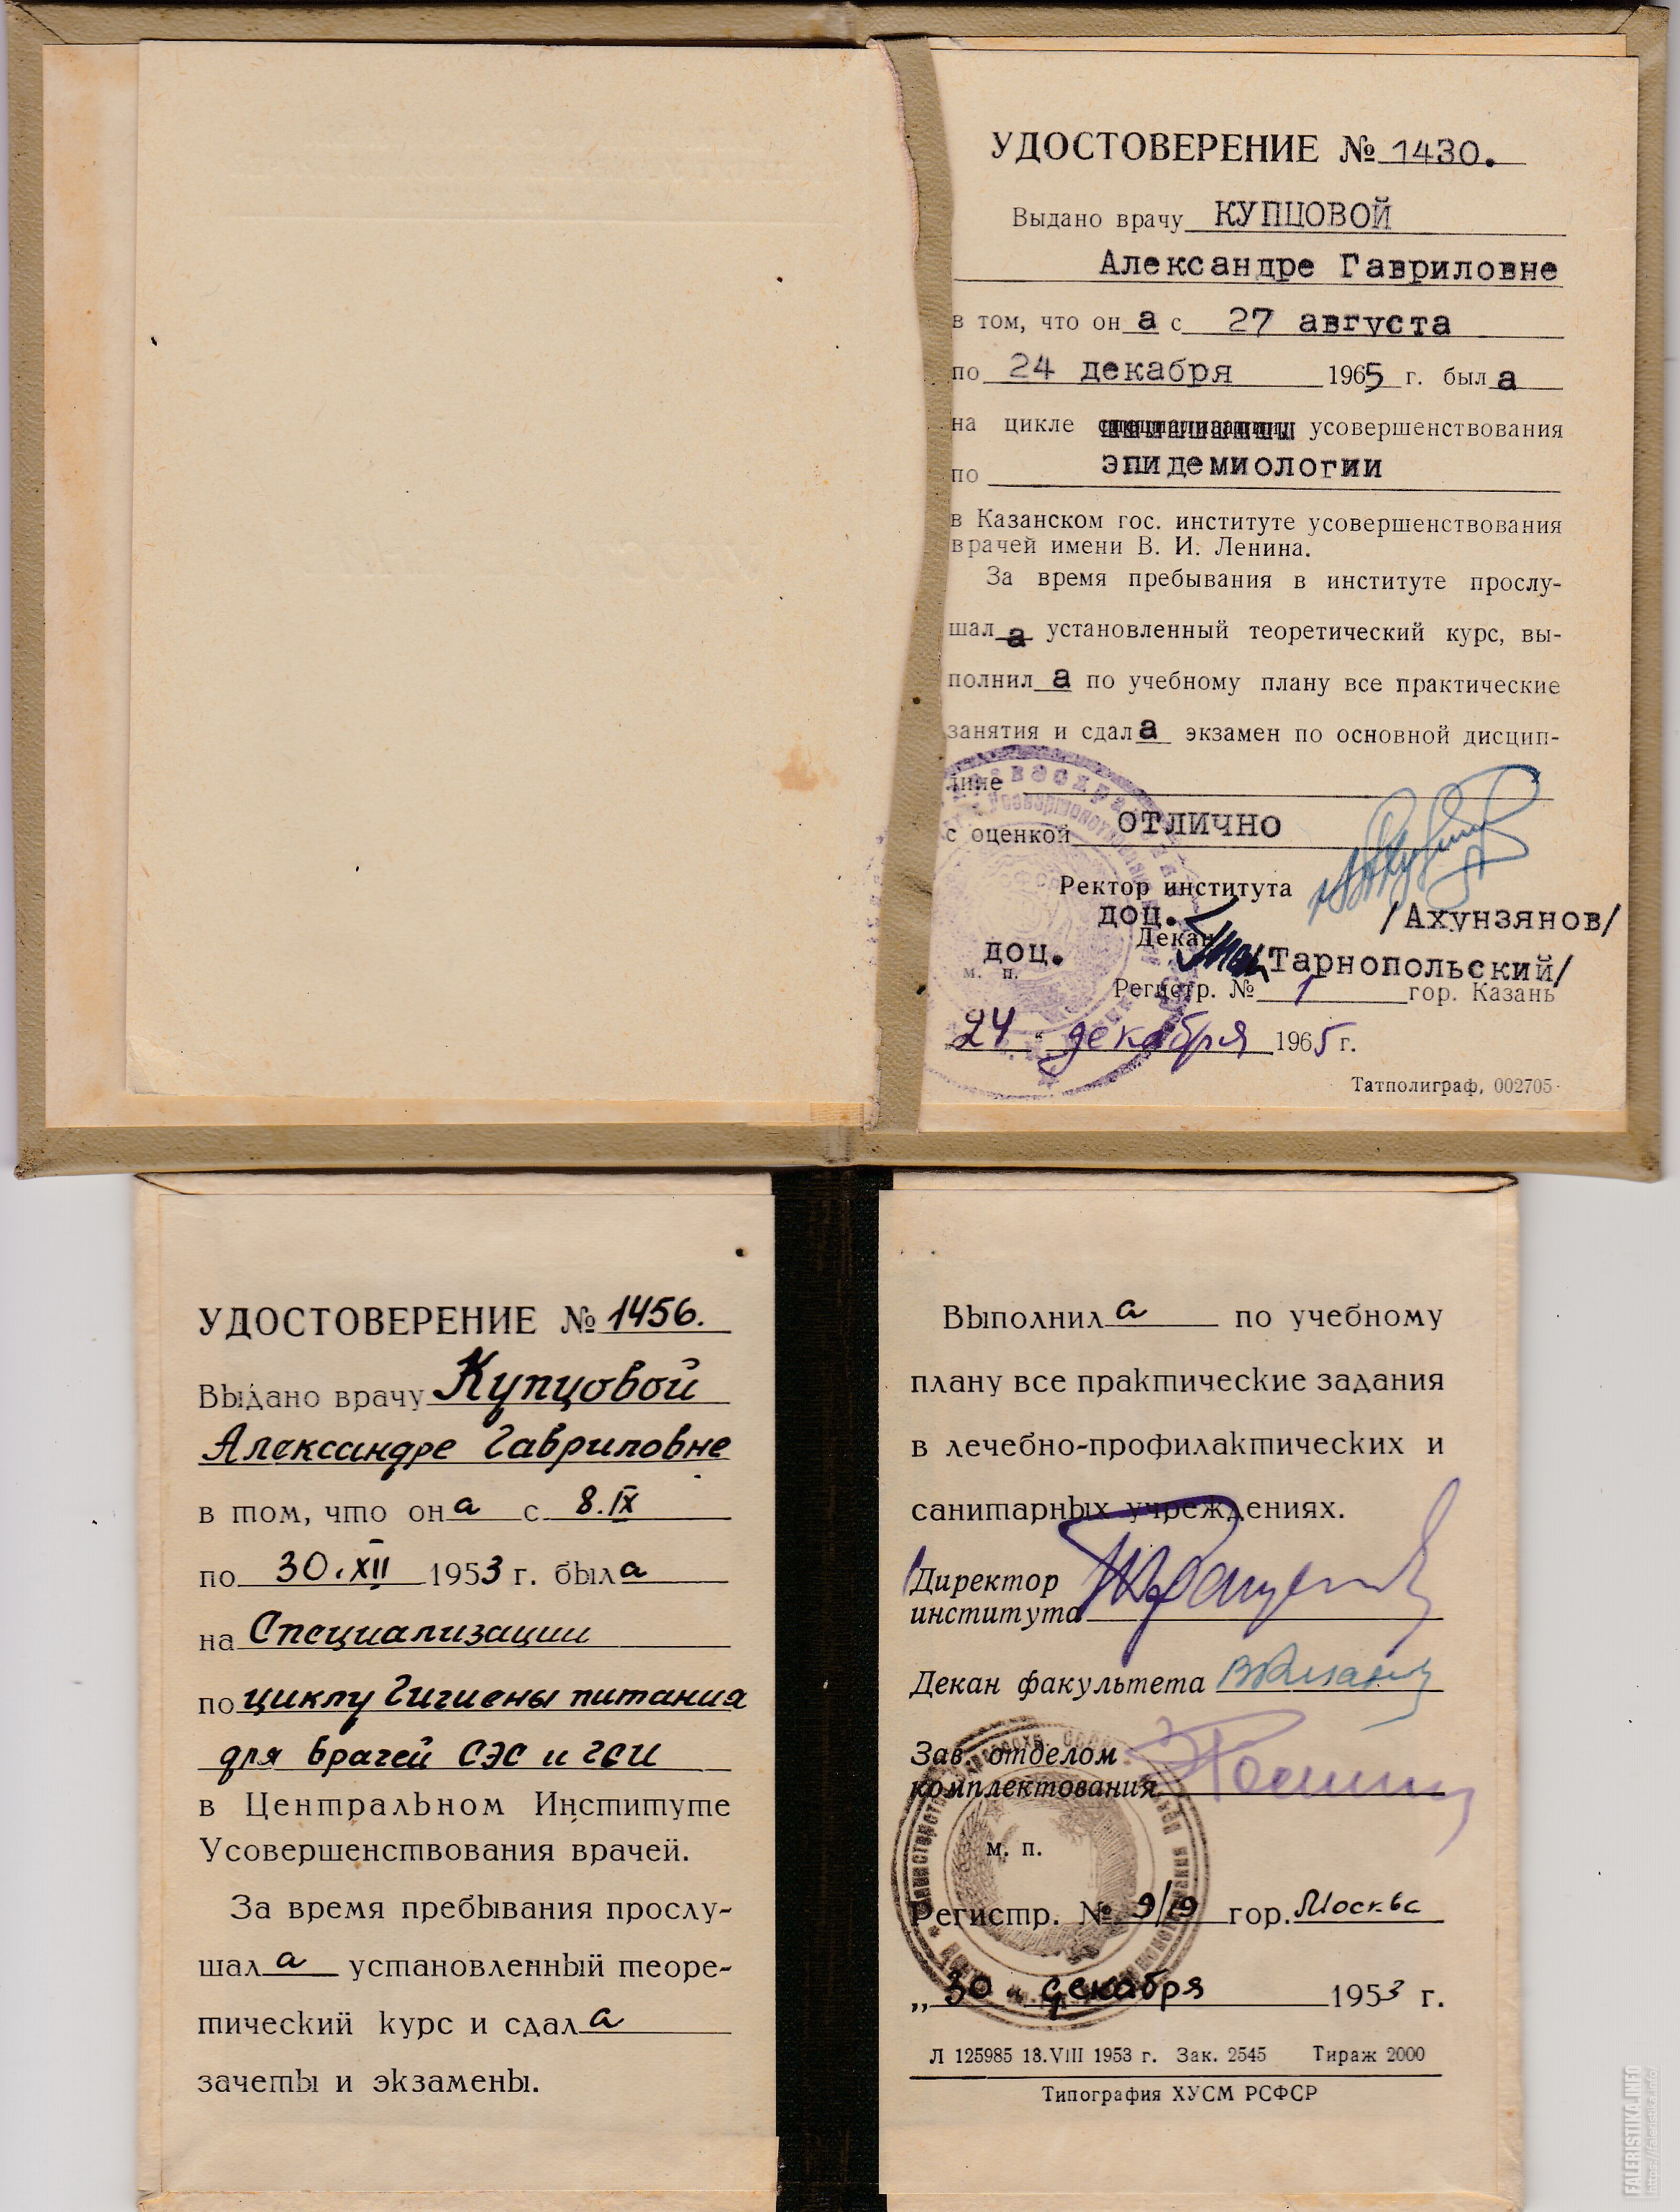 УДОСТОВЕРЕНИЕ № 1430.
Выдано врачу КУПЦОВОЙ
Александре Гавриловне
в том, что он а с 27 августа
по 24 декабря 1965 г. был а
на цикле усовершенствования
по эпидемиологии
в Казанском гос. институте усовершенствования
врачей имени В. И. Ленина.
За время пребывания в институте прослу-
шал а установленный теоретический курс, вы-
полнил а по учебному плану все практические
занятия и сдал а экзамен по основной дисцип-
лине
с оценкой отлично
Ректор института
доц. /Ахунзянов/
Декан
доц. Тарнопольский/
м. п.
Регистр. № 1 гор. Казань
24 " декабря 1965 г.
Татполиграф, 002705
УДОСТОВЕРЕНИЕ № 1456.
Выдано врачу Купцовой
Александре Гавриловне
в том, что он а с 8.IX
по 30.XII 1953 г. был а
на Специализации
по циклу Гигиены питания
для врачей СЭС и ГСИ
в Центральном Институте
Усовершенствования врачей.
За время пребывания прослу-
шал а установленный теоре-
тический курс и сдал а
зачеты и экзамены.
Выполнил а по учебному
плану все практические задания
в лечебно-профилактических и
санитарных учреждениях.
Директор
института
Декан факультета
Зав. отделом
комплектования
м. п.
Регистр. № 9/19 гор. Москва
„ 30 " декабря 1953 г.
Л 125985 13.VIII 1953 г. Зак. 2545 Тираж 2000
Типография ХУСМ РСФСР
FALERISTIKA.INFO
https://faleristika.info/